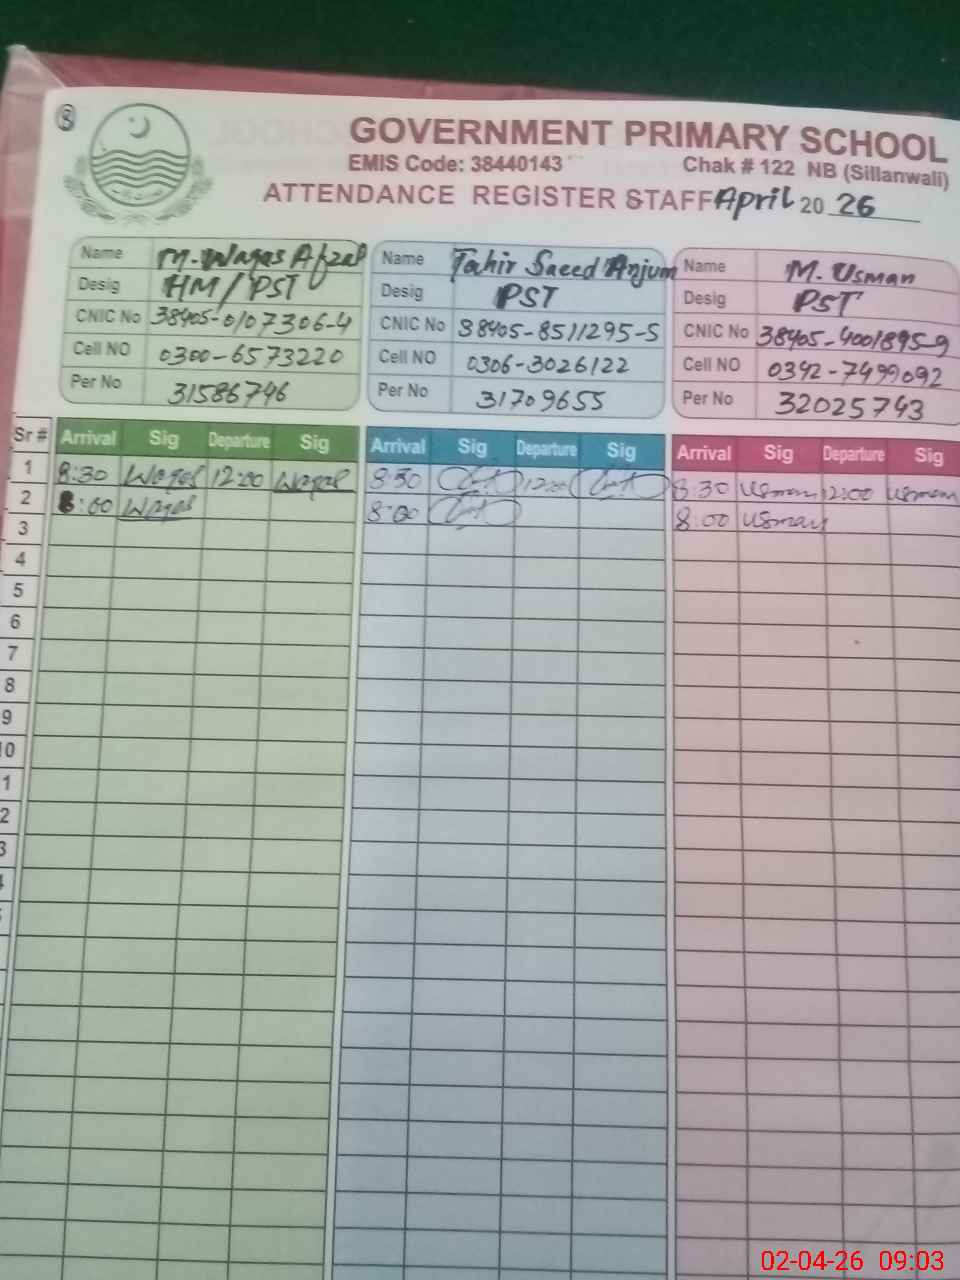 8
GOVERNMENT PRIMARY SCHOOL
EMIS Code: 38440143 Chak # 122 NB (Sillanwali)
ATTENDANCE REGISTER STAFF April 20 26
Name M. Waqas Afzal Name Tahir Saeed Anjum Name M. Usman
Desig HM/PST Desig PST Desig PST
CNIC No 38405-0107306-4 CNIC No 38405-8511295-5 CNIC No 38405-4001895-9
Cell NO 0300-6573220 Cell NO 0306-3026122 Cell NO 0342-7499092
Per No 31586746 Per No 31709655 Per No 32025743
Sr # Arrival Sig Departure Sig Arrival Sig Departure Sig Arrival Sig Departure Sig
1 8:30 Waqas 12:00 Waqas 8:30 12:00 8:30 Usman 12:00 Usman
2 8:00 Waqas 8:00 8:00 Usman
3
4
5
6
7
8
9
10
1
2
3
02-04-26 09:03